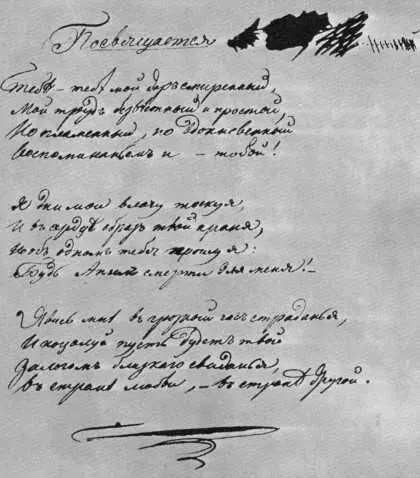 Посвѣщается
Тебѣ – тебѣ мой даръ смиренный,
Мой трудъ безвѣстный и простой,
Но пламенный, но вдохновенный
Воспоминаньемъ и – тобой!
Я дни мои влачу тоскуя
И въ сердцѣ образъ твой храня,
Но объ одномъ тебя прошу я:
Будь Ангелъ смерти для меня! –
Явись мнѣ въ грозный часъ страданья,
И поцѣлуй пусть будетъ твой
Залогомъ близкаго свиданья,
Въ странѣ любви, – въ странѣ другой.